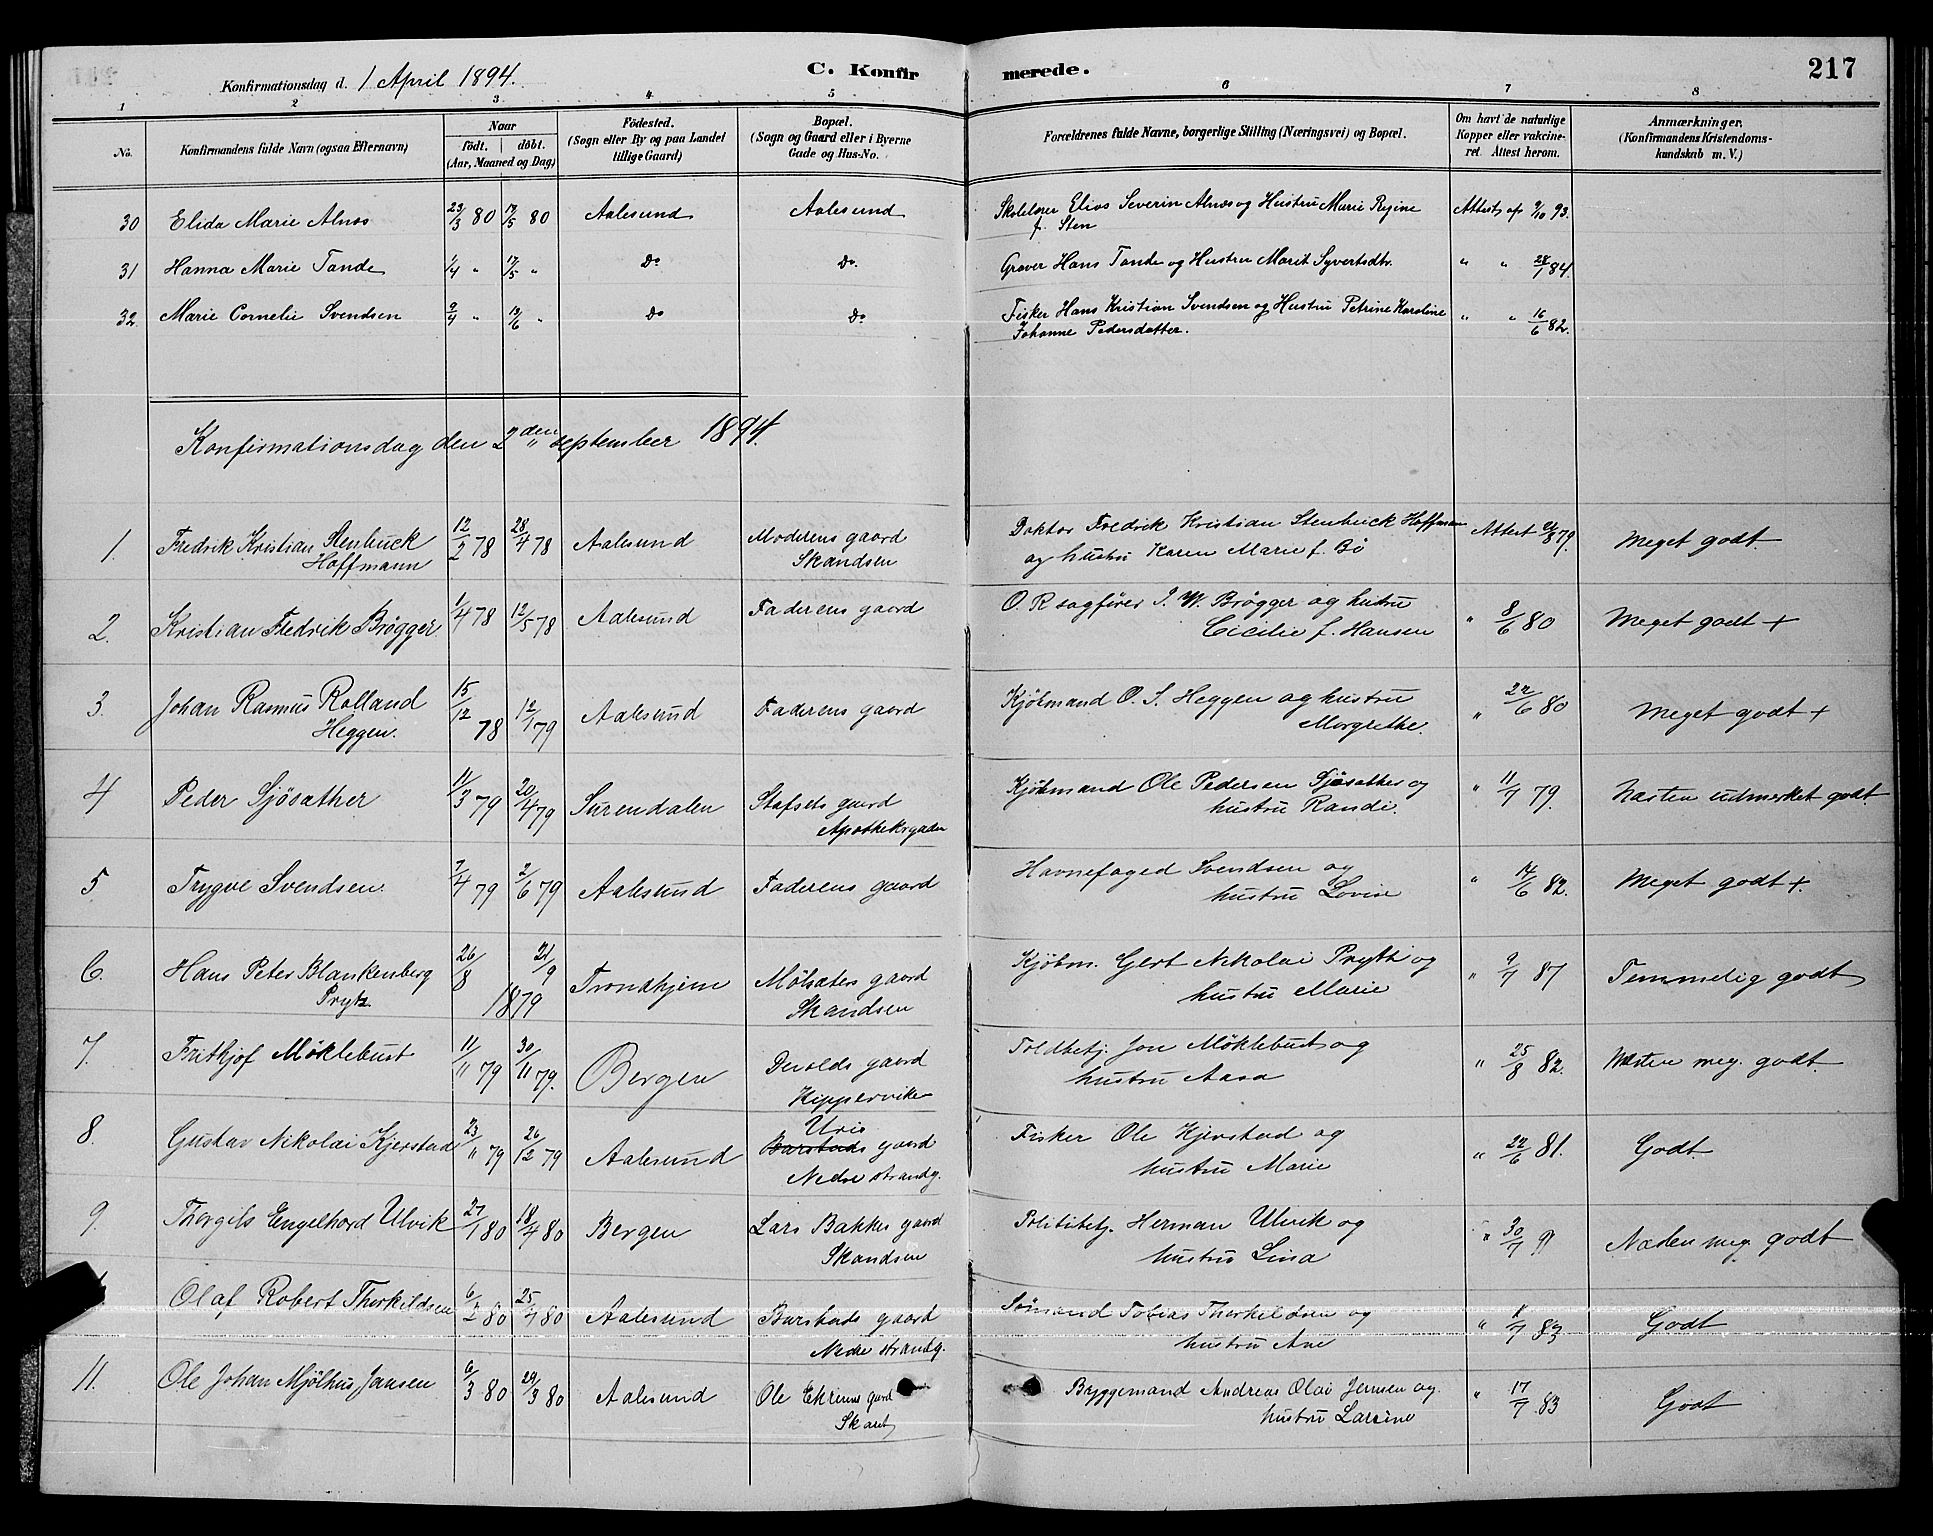 Konfirmationsdag d. 1 April 1894. C. Konfirmerede. 217
1 2 3 4 5 6 7 8
No. Konfirmandens fulde Navn (ogsaa Efternavn) Naar født. døbt. (Aar, Maaned og Dag) Fødested. (Sogn eller By og paa Landet tillige Gaard) Bopæl. (Sogn og Gaard eller i Byerne Gade og Hus-No. Forældrenes fulde Navne, borgerlige Stilling (Næringsvei) og Bopæl. Om havt de naturlige Kopper eller vakcineret. Attest herom. Anmærkninger, (Konfirmandens Kristendomskundskab m. V.)
30 Elida Marie Alnæs 23/3 80 17/5 80 Aalesund Aalesund Skolelærer Elias Severin Alnæs og Hustru Marie Regine Attest af 9/10 93.
f. Sten
31 Hanna Marie Tande 1/4 " 17/5 " Do Do. Graver Hans Tande og Hustru Marit Syvertsdtr. " " 28/1 84.
32. Marie Cornelie Svendsen 9/4 " 13/6 " Do Do Fisker Hans Kristian Svendsen og Hustru Petrine Karoline " " 16/6 82.
Johanne Pedersdatter.
Konfirmationsdag den 2den september 1894.
1. Fredrik Kristian Stenbuck 12/2 78 28/4 78 Aalesund Moderens gaard Doktor Fredrik Kristian Stenbuck Hoffmann Attest 79. Meget godt.
Hoffmann Skandsen og hustru Karen Marie f. Bö
2. Kristian Fredrik Brøgger 1/4 78 12/5 78 Aalesund Faderens gaard O. R sagfører I. W. Brøgger og hustru " 8/6 80 Meget godt +
Cicilie f. Hansen
3. Johan Rasmus Rolland 15/12 78 12/1 79 Aalesund Faderens gaard Kjøbmand O. I. Heggen og hustru " 22/6 80 Meget godt +
Heggen. Margrethe.
4 Peder Sjøsæther 11/3 79 20/4 79 Surendalen Stafsets gaard Kjøbmand Ole Pedersen Sjøsæther og " 11/7 79. Næsten udmerket godt.
Apothekergaden hustru Randi.
5 Trygve Svendsen. 7/4 79 2/6 79 Aalesund Faderens gaard Havnefoged Svendsen og " 14/6 82. Meget godt +.
hustru Lovise
6. Hans Peter Blankenberg 26/8 21/9 Trondhjem Mølsæters gaard Kjøbm. Gert Nikolai Prytz og " 9/7 87 Temmelig godt
Prytz 1879 Skandsen hustru Marie
7. Frithjof Møklebust 11/11 79 30/11 79. Bergen Devolds gaard Toldbetj. Jon Møklebust og " 25/8 82. Næsten meg. godt.
Kipperviken hustru Aasa
8. Gustav Nikolai Kjerstad 23/11 79 26/12 79 Aalesund Uris Fisker Ole Kjerstad og " 22/6 81. Godt.
Barstads gaard
Nedre strandg. hustru Marie
9. Thorgils Engelhard Ulvik 27/1 80 18/4 80 Bergen Lars Bakkes gaard Politibetj. Herman Ulvik og " 30/7 Næsten meg. godt
Skandsen hustru Lina
Olaf Robert Therkildsen 6/2 80 25/4 80 Aalesund Barstads gaard Sømand Tobias Therkildsen og " 83 Godt
Nedre strandg. hustru Ane
11. Ole Johan Mjølhus Jansen 6/3 80 29/3 80 Aalesund Ole Ekrems gaard Byggemand Andreas Olai Jensen og " 17/7 83 Godt
Skaret hustru Larsine